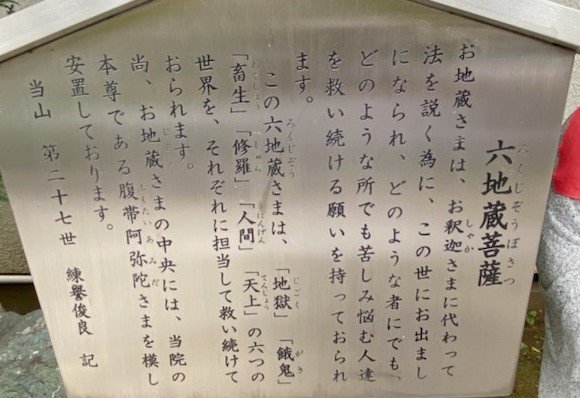 六地蔵菩薩
ろくじぞうぼさつ
お地蔵さまは、お釈迦さまに代わって
しゃか
法を説く為に、この世にお出まし
になられ、どのような者にでも、
どのような所でも苦しみ悩む人達
を救い続ける願いを持っておられ
ます。
この六地蔵さまは、「地獄」「餓鬼」
ろくじぞう じごく がき
「畜生」「修羅」「人間」「天上」の六つの
しゅら にんげん てんじょう
世界を、それぞれに担当して救い続けて
おられます。
尚、お地蔵さまの中央には、当院の
本尊である腹帯阿弥陀さまを模し
あみだ
安置しております。
当山 第二十七世 練譽俊良 記